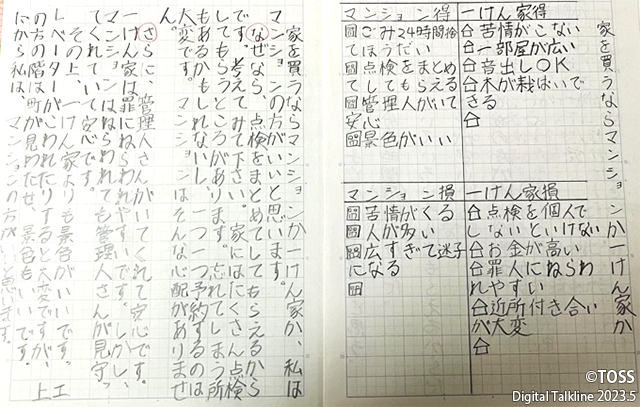 家を買うならマンションか一けん家か
一けん家得
苦情がこない
一部屋が広い
音出しOK
木が栽ばいで
きる
マンション得
ごみ24時間捨
てほうだい
点検をまとめ
てしてもらえる
管理人がいて
安心
景色がいい
一けん家損
点検を個人で
しないといけない
お金が高い
罪人にねらわ
れやすい
近所付き合い
が大変
マンション損
苦情がくる
人が多い
広すぎて迷子
になる
家を買うならマンションか一けん家か、私は
マンションの方がいいと思います。
なぜなら、点検をまとめてしてもらえるから
です。考えてみて下さい。家にはたくさん点検
してもらうところがあります。忘れてしまう所
もあるかもしれないし、一つ一つ予約するのは
大変です。マンションはそんな心配がありませ
ん。
さらに、管理人さんがいてくれて安心です。
一けん家は罪にねらわれやすいです。しかし、
マンションはねらわれても管理人さんが見守っ
てくれていて安心です。
その上、一けん家よりも景色がいいです。エ
レベーターがこわれたりすると大変ですが、上
の方の階は町が見わたせ、景色もいいです。
だから私は、マンションの方がいいと思います。
©TOSS
Digital Talkline 2023.5